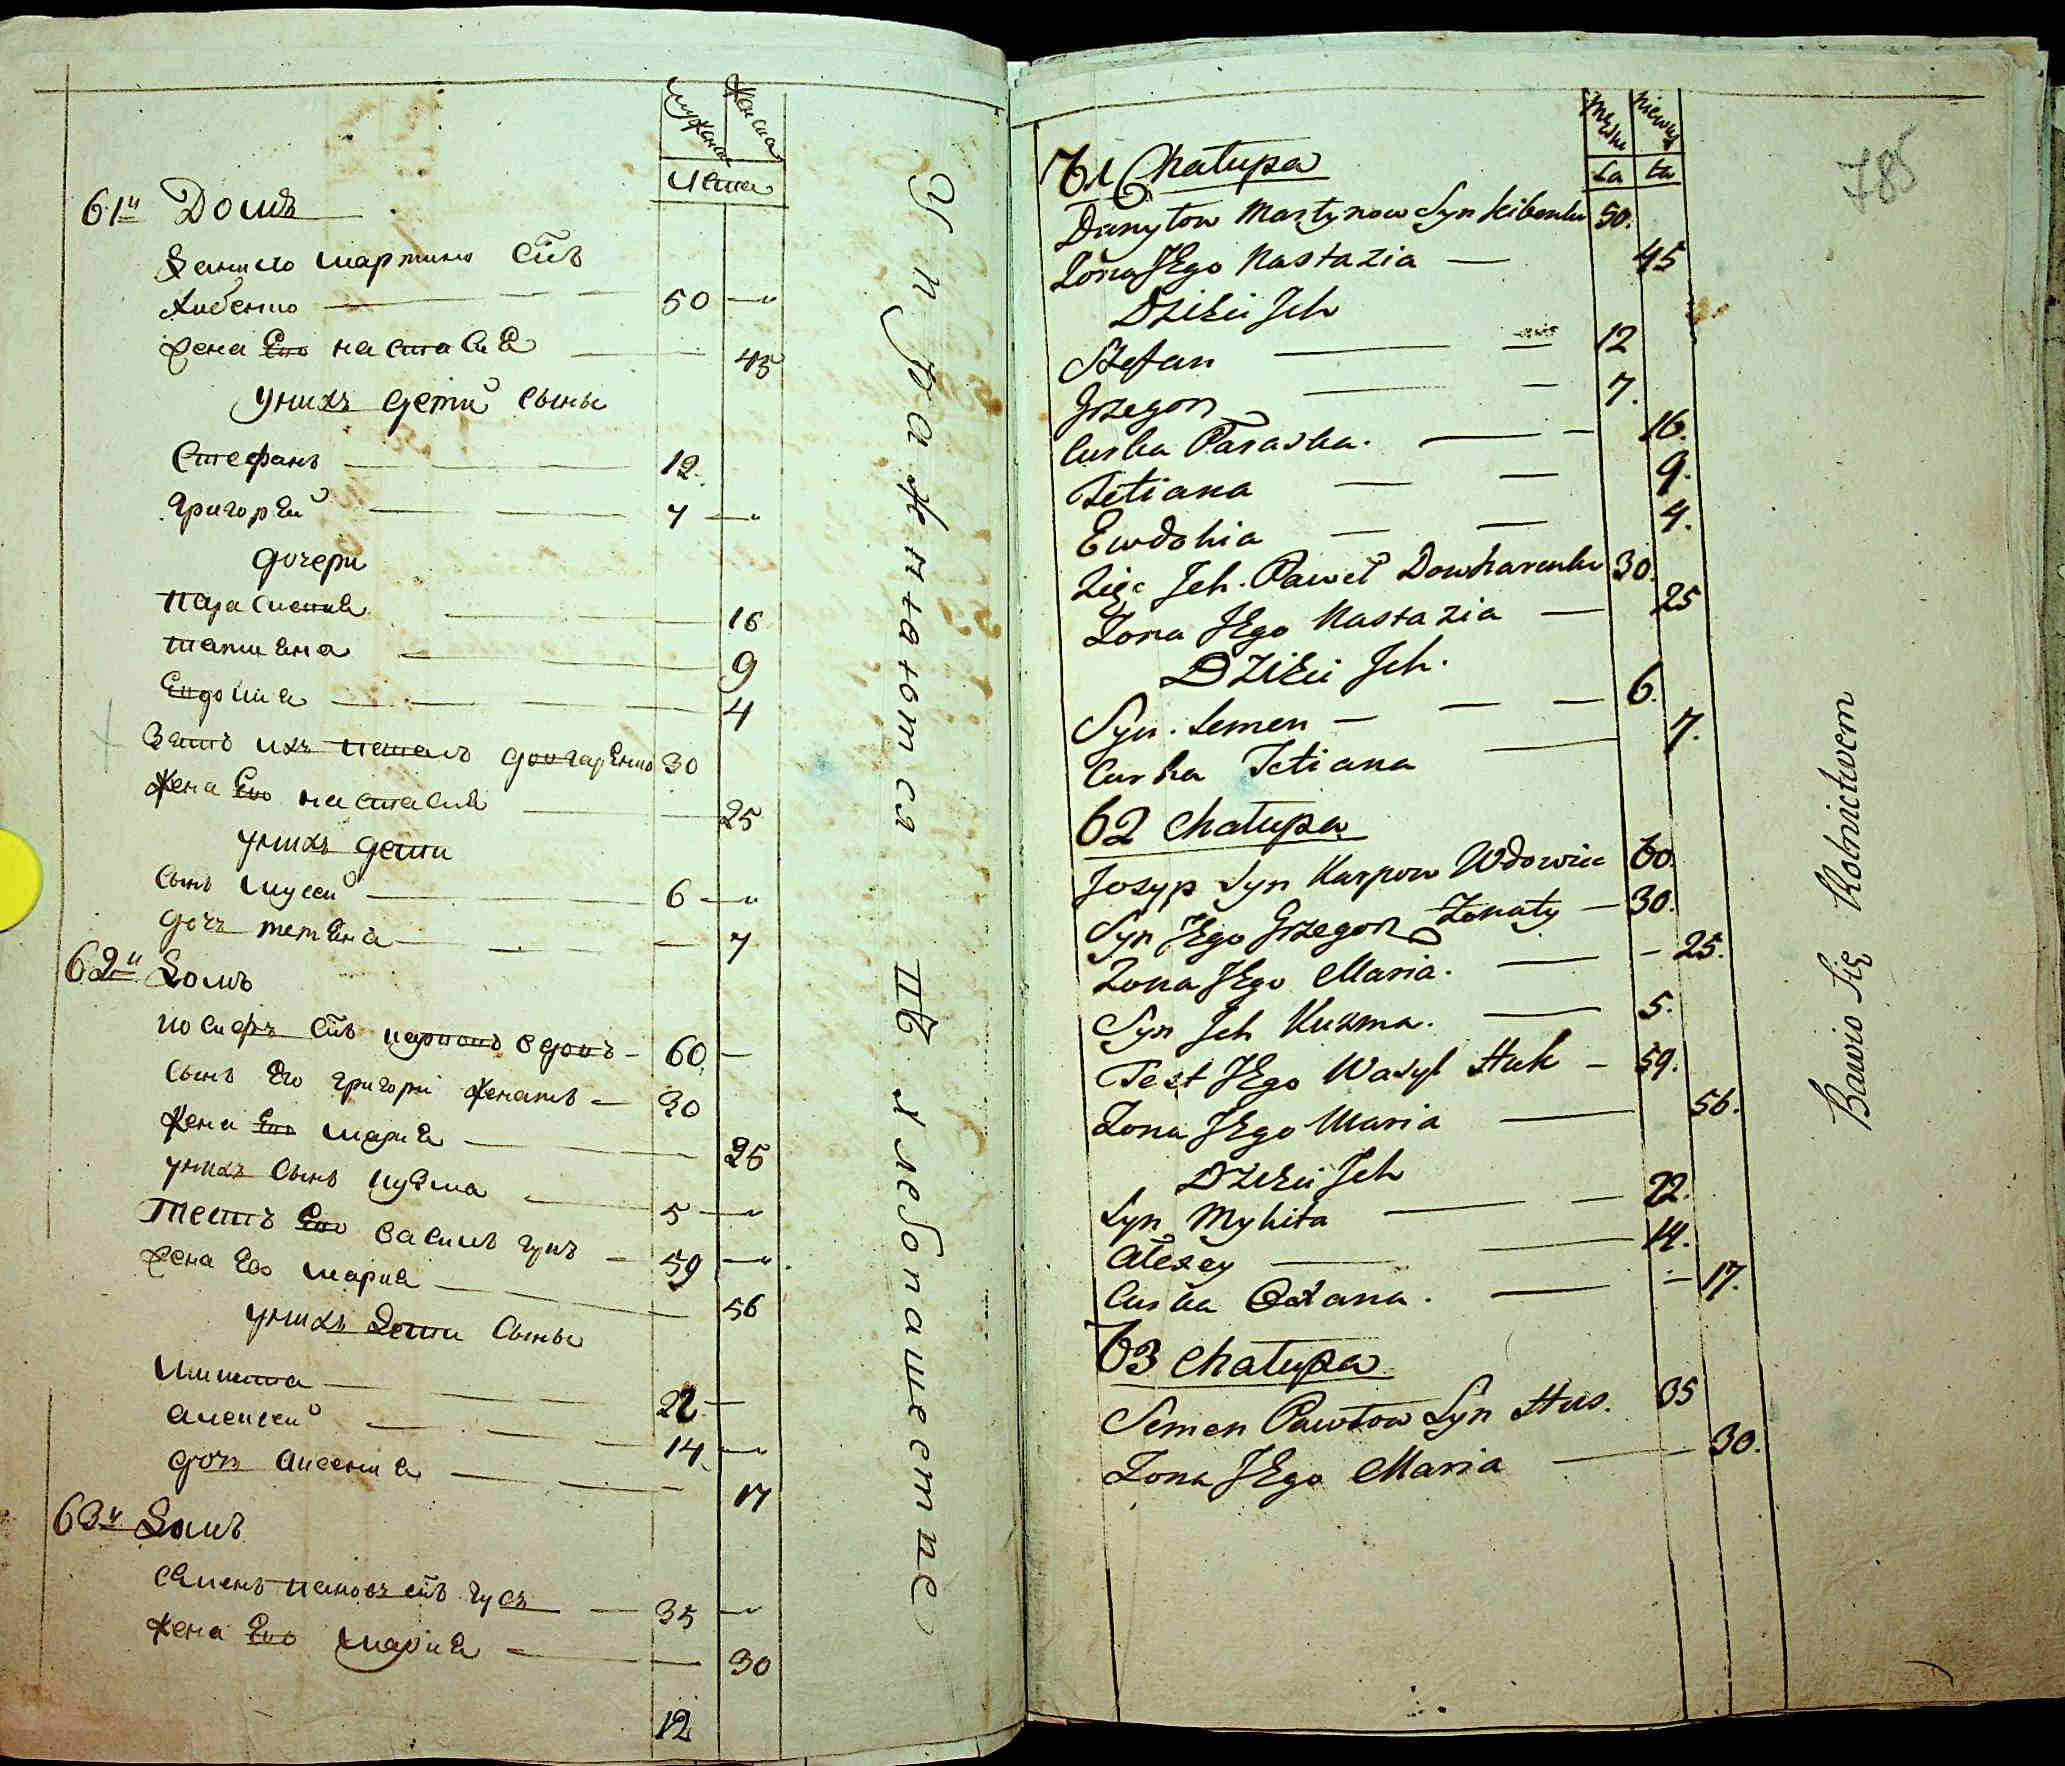 мужеска женска
лета
61й Домъ
Данило Мартиновъ снъ
Кибенко 50
жена Его настасиа 45
унихъ дети сыны
Стефанъ 12
григорѣй 7
дочери
Параскевиа 16
татиана 9
Евдокиа 4
Зять ихъ павелъ довгаренко 30
жена Его настасиа 25
унихъ дети
сынъ мусей 6
дочь тетиана 7
62й Домъ
иосифъ снъ карповъ вдовъ 60
сынъ Его григорий женатъ 30
жена Его мариа 25
унихъ сынъ кузма 5
Тесть Его василь гукъ 59
жена Его мариа 56
унихъ Дети сыны
микита 22
алексей 14
дочь аксениа 17
63й Домъ
семенъ павловъ снъ гусъ 35
жена Его мариа 30
12
Упражняются въ хлебопашестве
785
Męzka niewiesc
La ta
61 Chałupa
Danyłow Martynow Syn Kibenko 50.
Żona JEgo Nastazia 45
Dzieci Jch
Stefan 12
Grzegorz 7.
Curka Paraska. 16.
Tetiana 9.
Ewdokia 4.
Zięc Jch. Paweł Dowharenko 30.
Żona JEgo Nastazia 25
Dzieci Jch.
Syn. Semen 6.
Curka Tetiana 7.
62 Chałupa
Jozyp Syn Karpow Wdowiec 60.
Syn JEgo Grzegorz Żonaty 30.
Żona JEgo Maria. 25.
Syn Jch Kuzma. 5.
Test JEgo Wasyl Huk 59.
Żona JEgo Maria 56.
Dzieci Jch
Syn Mykita 22.
Alexey 14.
Curka Oxana. 17.
63 Chałupa
Semen Pawłow Syn Hus. 35
Żona JEgo Maria 30.
Bawio Się Rolnictwem